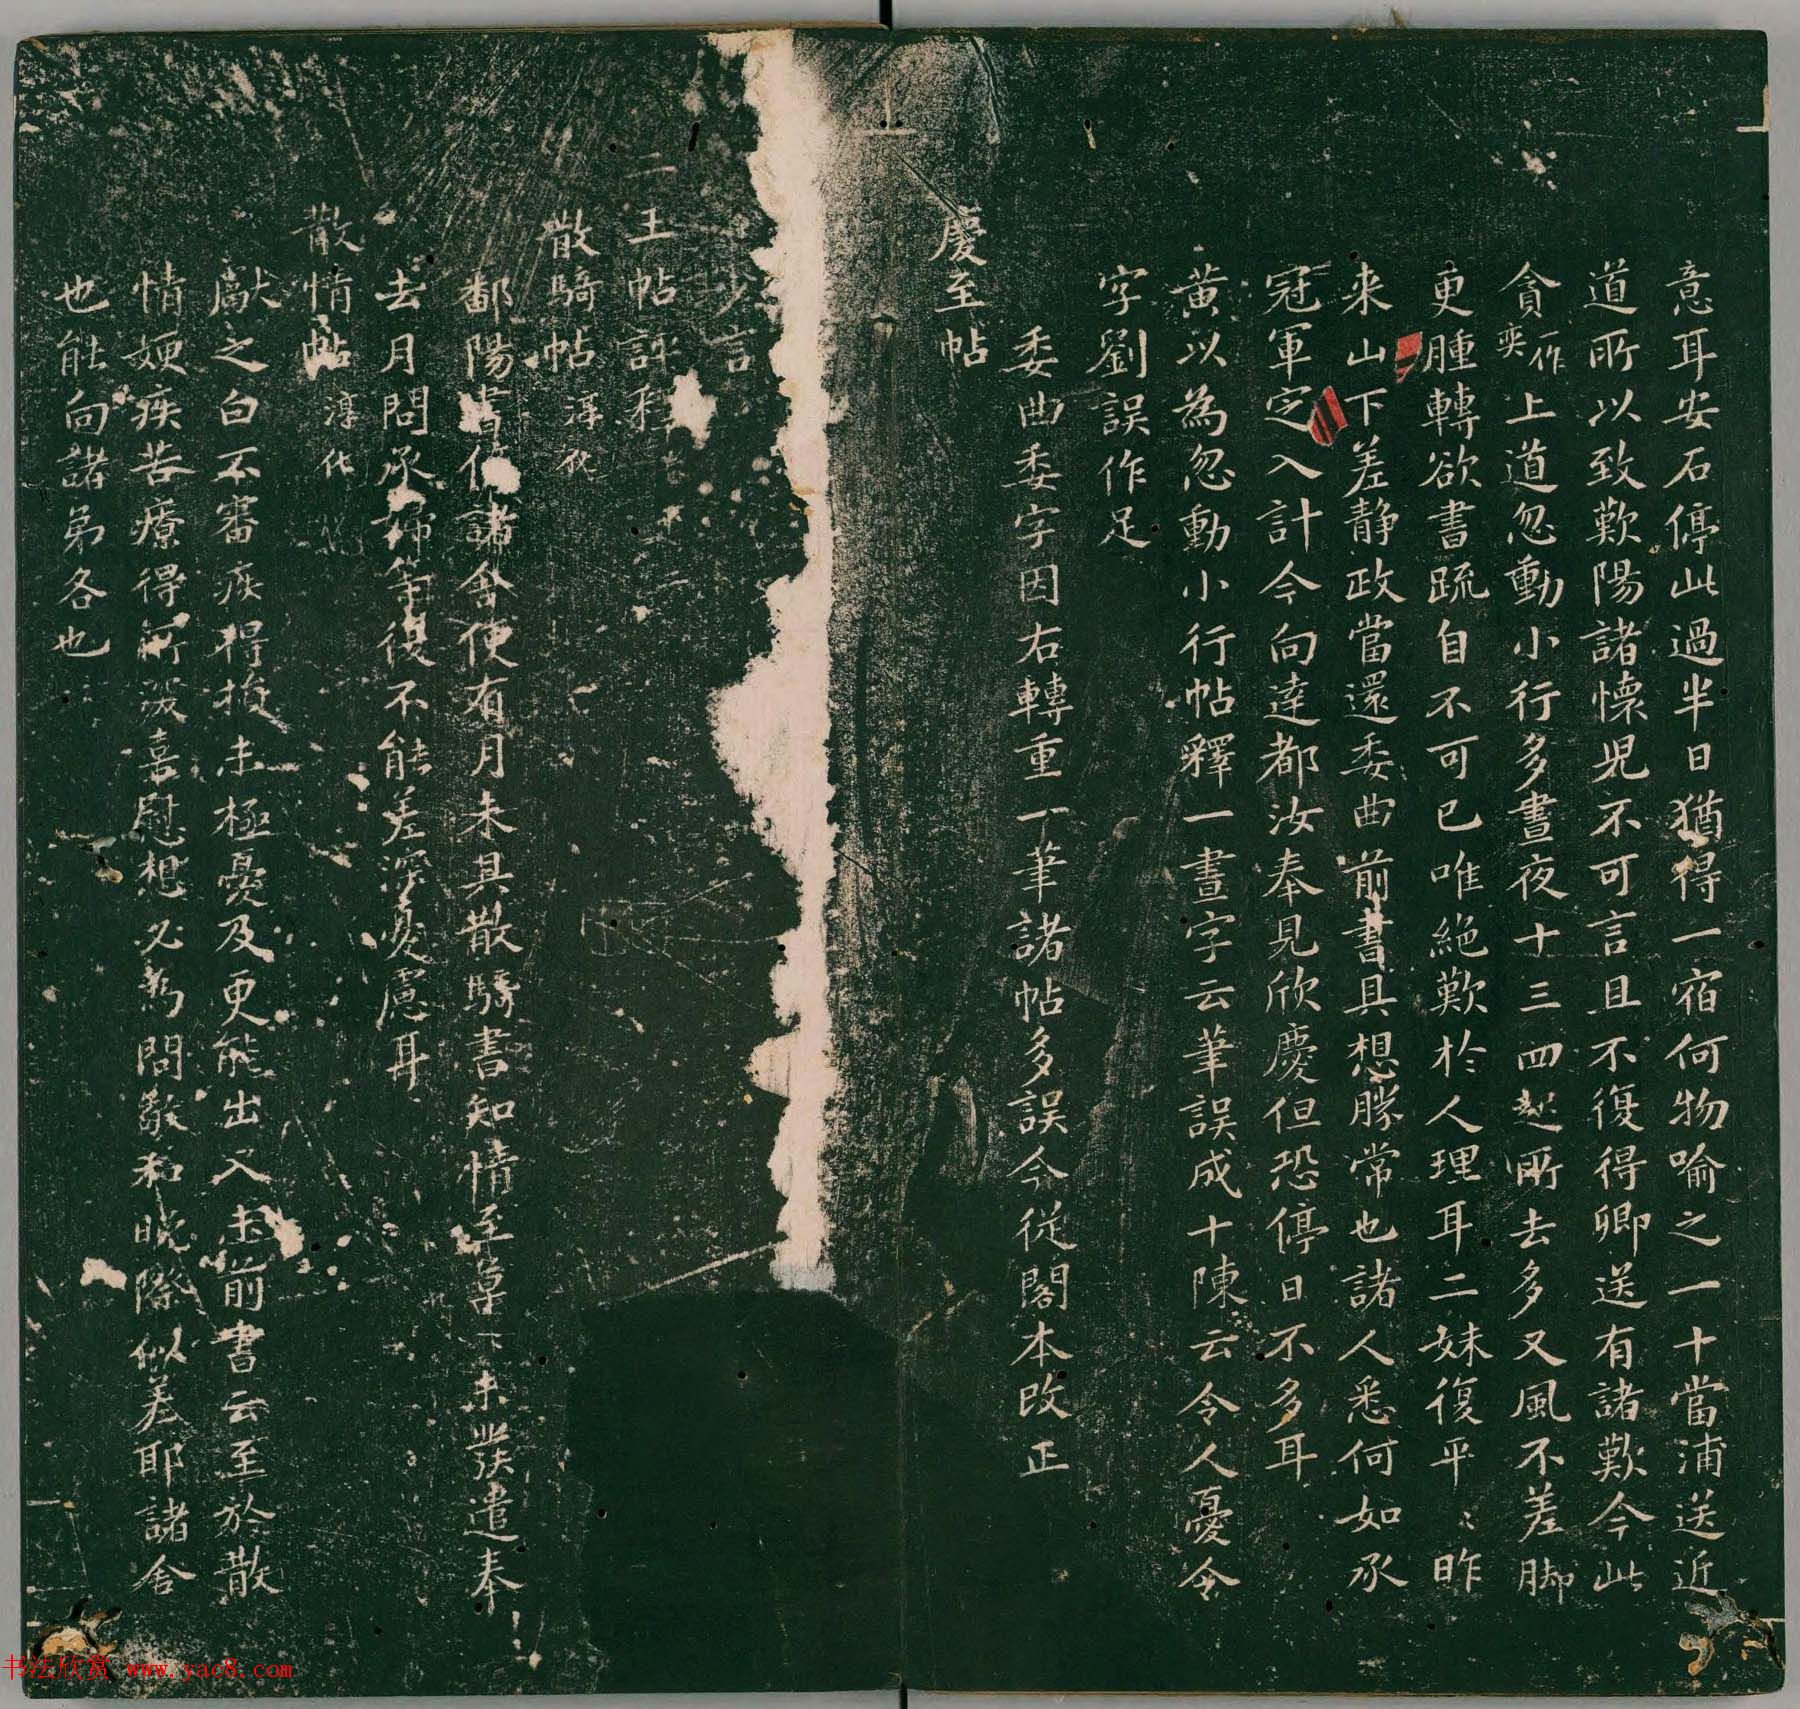 意耳安石停此過半日猶得一宿何物喻之一十當浦送近
道所以致歎陽諸懷兒不可言且不復得卿送有諸歎今此
貪一作奕上道忽動小行多晝夜十三四起所去多又風不差脚
更腫轉欲書疏自不可已唯絕歎於人理耳二妹復平〻昨
来山下差静政當還委曲前書具想勝常也諸人悉何如承
冠軍定入計今向達都汝奉見欣慶但恐停日不多耳
黃以為忽動小行帖釋一晝字云筆誤成十陳云令人憂令
字劉誤作足
委曲委字因右轉重一筆諸帖多誤今從閣本改正
慶至帖
少言
二王帖評釋
散騎帖 淳化
鄱陽書停諸舍便有月未具散騎書知情至草〻未發遣奉
去月問承婦等復不能差深憂慮耳
散情帖 淳化
獻之白不審疾得損未極憂及更能出入未前書云至於散
情婞疾苦療得所汲喜慰想必為問敬和晚際似差耶諸舍
也能向諸弟各也
书法欣赏 www.yac8.com